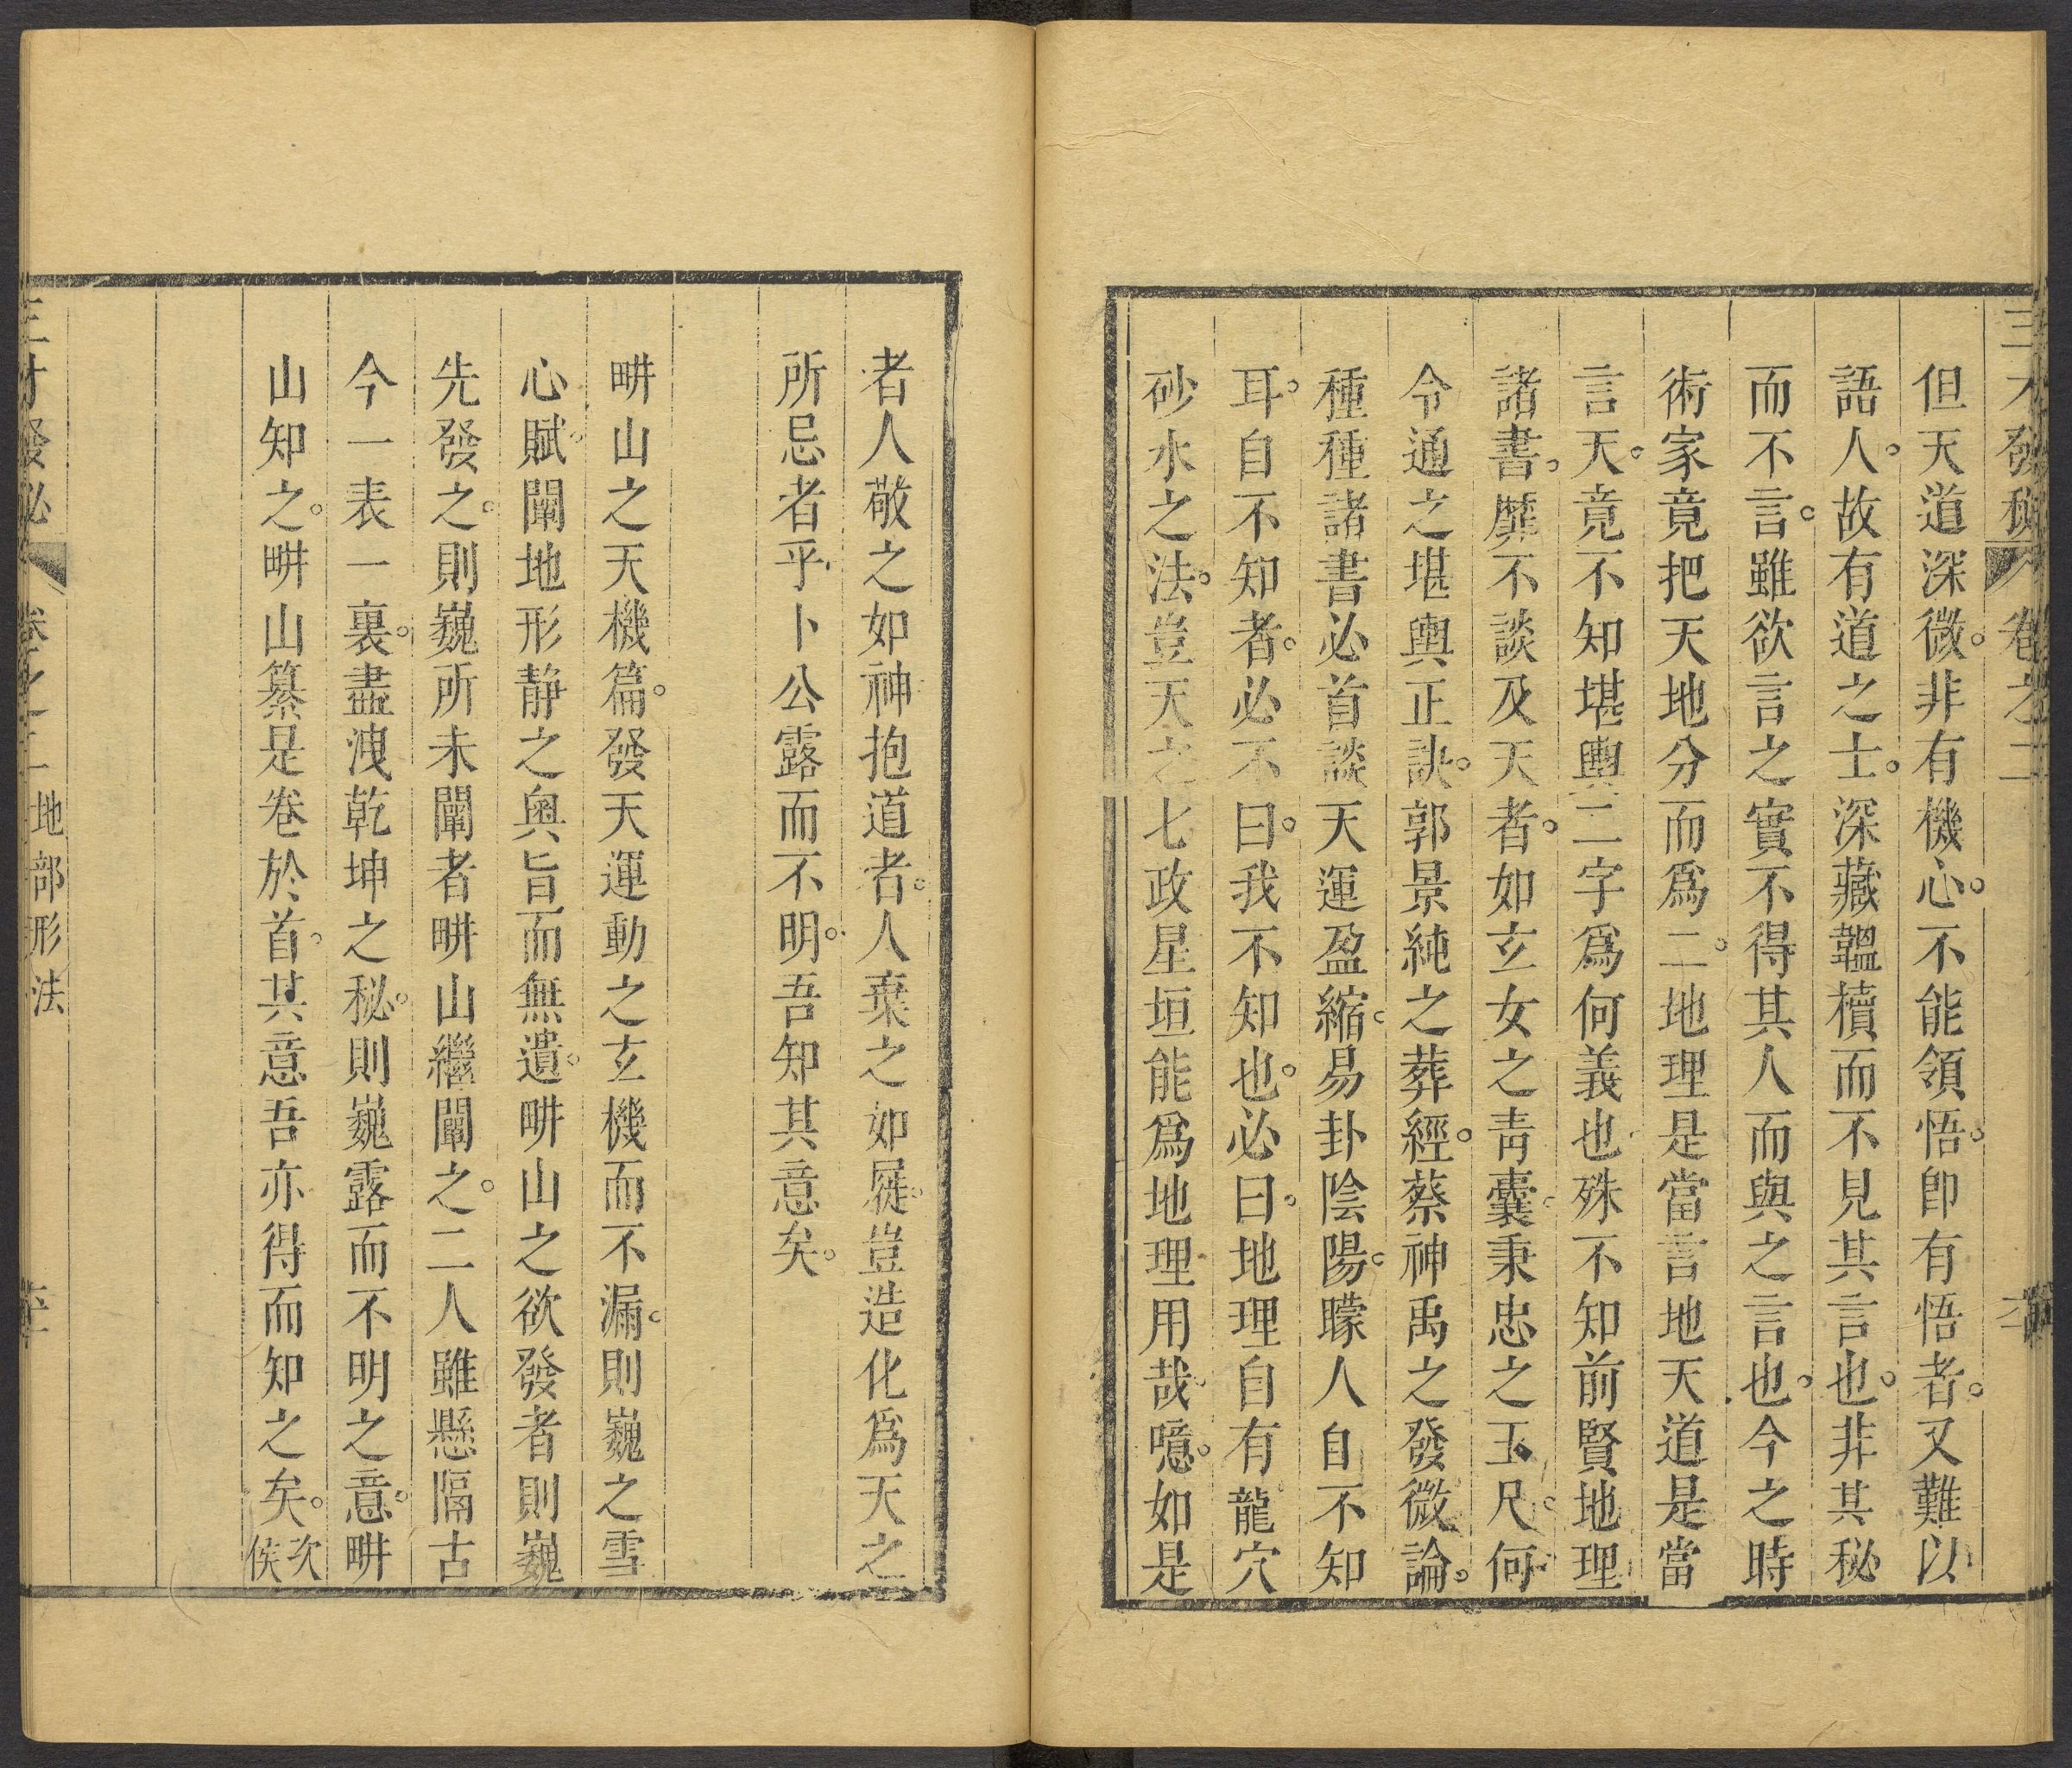 三才發秘 卷之二
但天道深微。非有機心。不能領悟。即有悟者。又難以
語人。故有道之士。深藏韞櫝而不見其言也。非其秘
而不言。雖欲言之實不得其人而與之言也。今之時
術家竟把天地分而爲二。地理是當言地天道是當
言天。竟不知堪輿二字爲何義也殊不知前賢地理
諸書。靡不談及天者。如玄女之青囊。秉忠之玉尺。何
令通之堪輿正訣。郭景純之葬經。蔡神禹之發微論。
種種諸書必首談天運盈縮。易卦陰陽。矇人自不知
耳。自不知者。必不曰。我不知也。必曰。地理自有龍穴
砂水之法。豈天之七政星垣能爲地理用哉。噫。如是
者人敬之如神抱道者。人棄之如屣。豈造化爲天之
所忌者乎卜公露而不明。吾知其意矣。
畊山之天機篇。發天運動之玄機而不漏。則巍之雪
心賦。闡地形靜之奥旨而無遺。畊山之欲發者則巍
先發之。則巍所未闡者畊山繼闡之。二人雖懸隔古
今一表一裏。盡洩乾坤之秘。則巍露而不明之意。畊
山知之。畊山纂是卷於首。其意吾亦得而知之矣。次侯
三才發秘 卷之二 地部形法